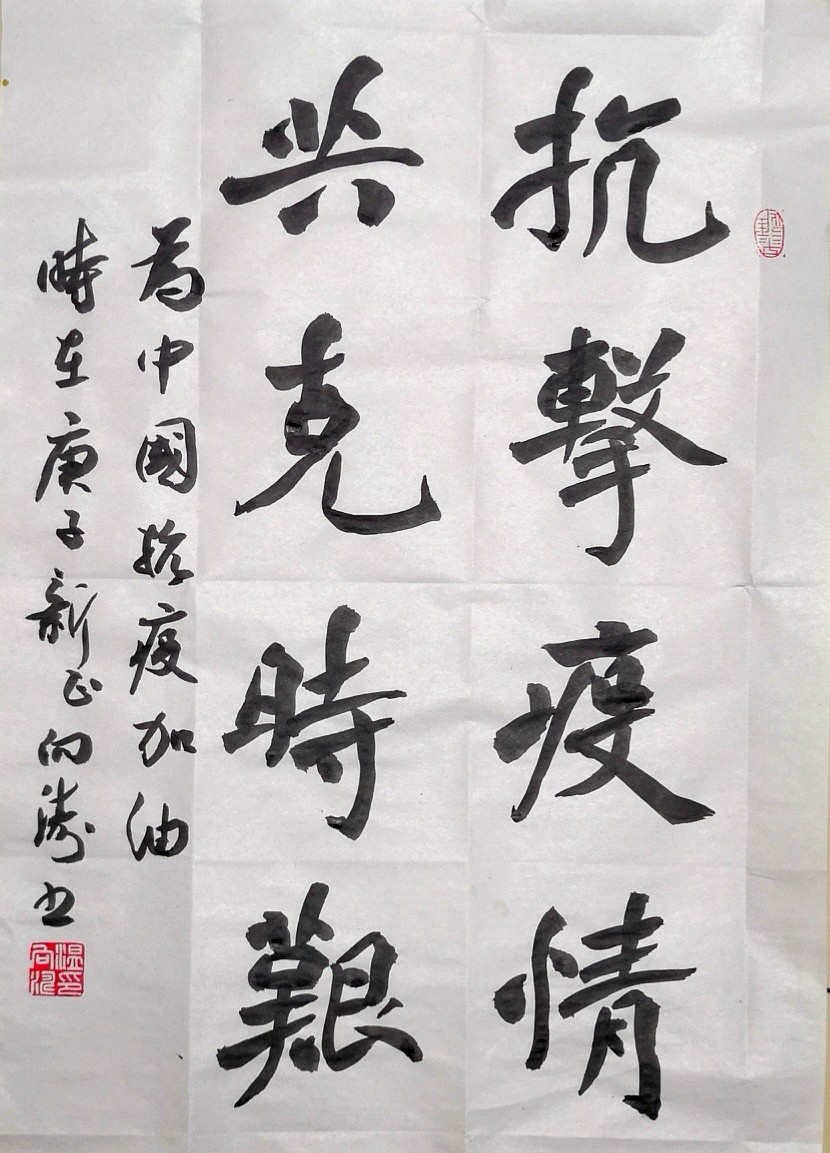 抗擊疫情
共克時艱
為中國抗疫加油
時在庚子新正向濤书